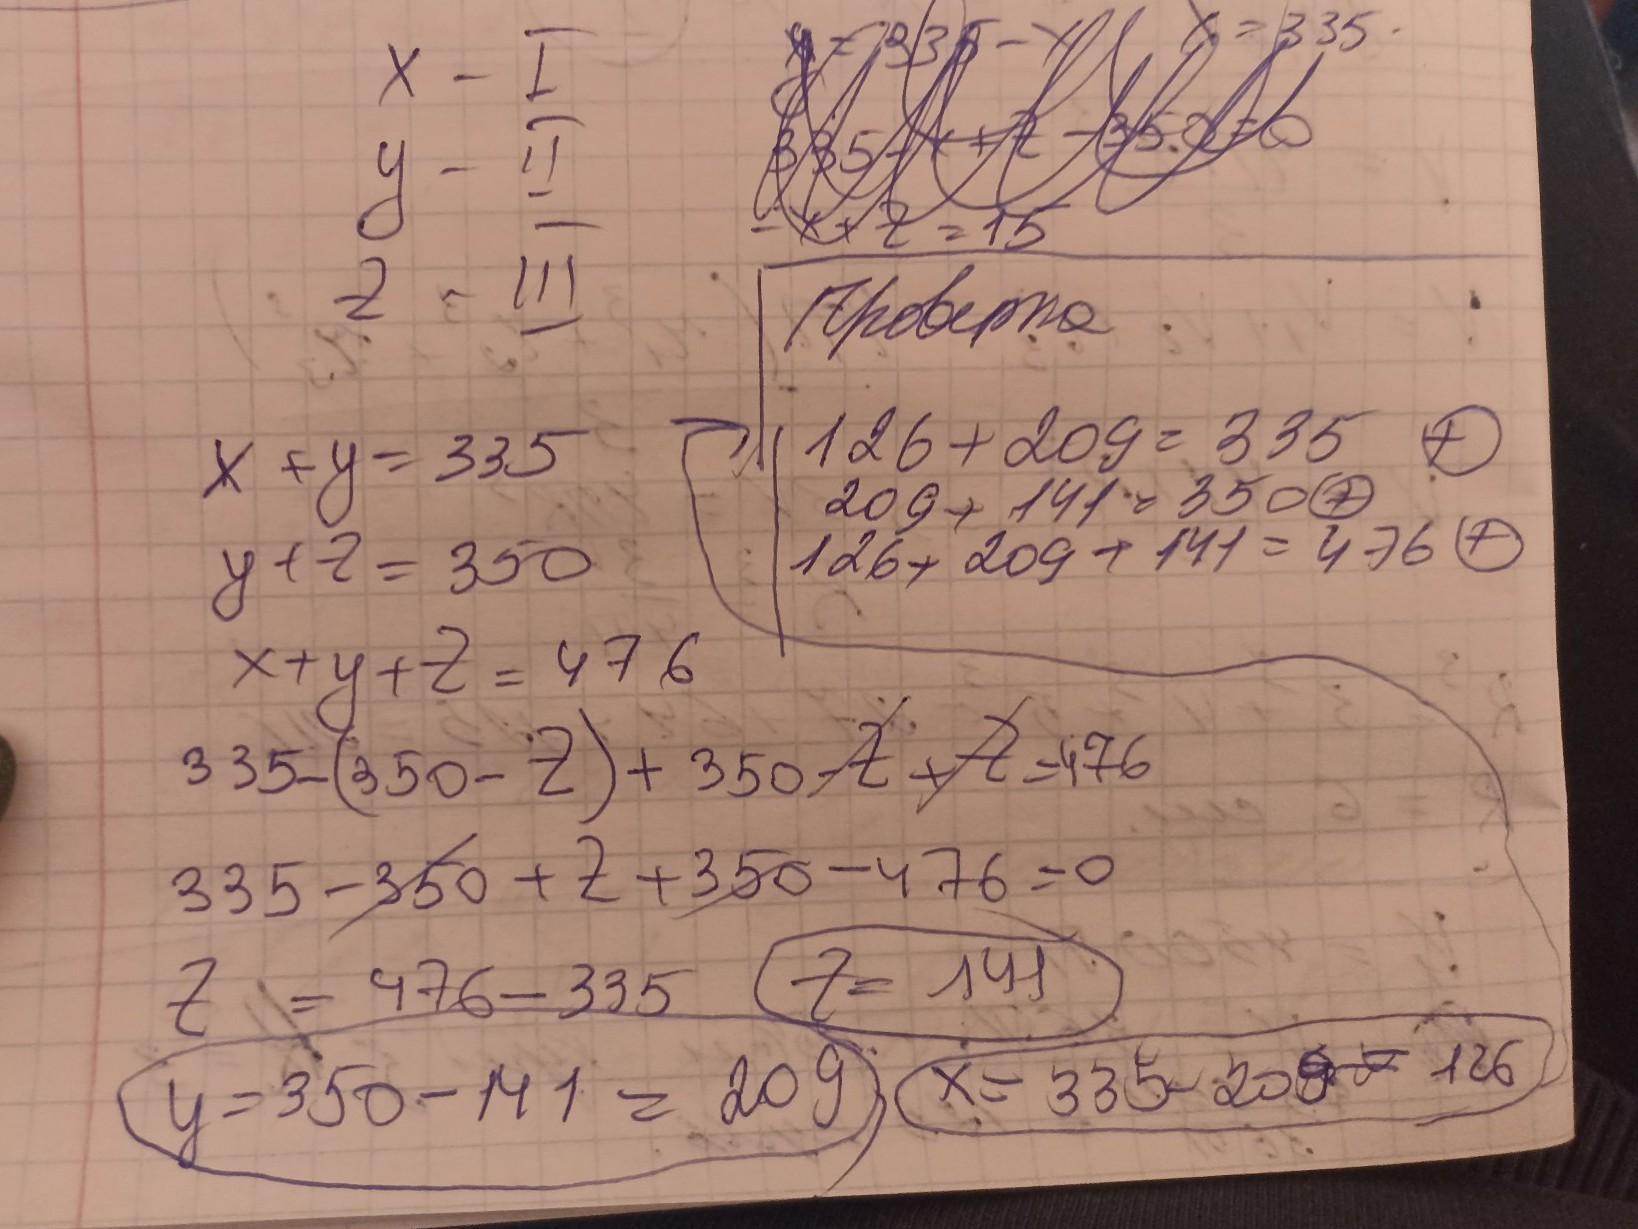 x - I
y - II
z - III
y = 335 - x x = 335.
335 - x + z - 350 = 0
- x + z = 15
Проверка
126 + 209 = 335 (+)
209 + 141 = 350 (+)
126 + 209 + 141 = 476 (+)
x + y = 335
y + z = 350
x + y + z = 476
335 - (350 - z) + 350 - z + z = 476
335 - 350 + z + 350 - 476 = 0
z = 476 - 335 z = 141
y = 350 - 141 = 209 x = 335 - 209 = 126